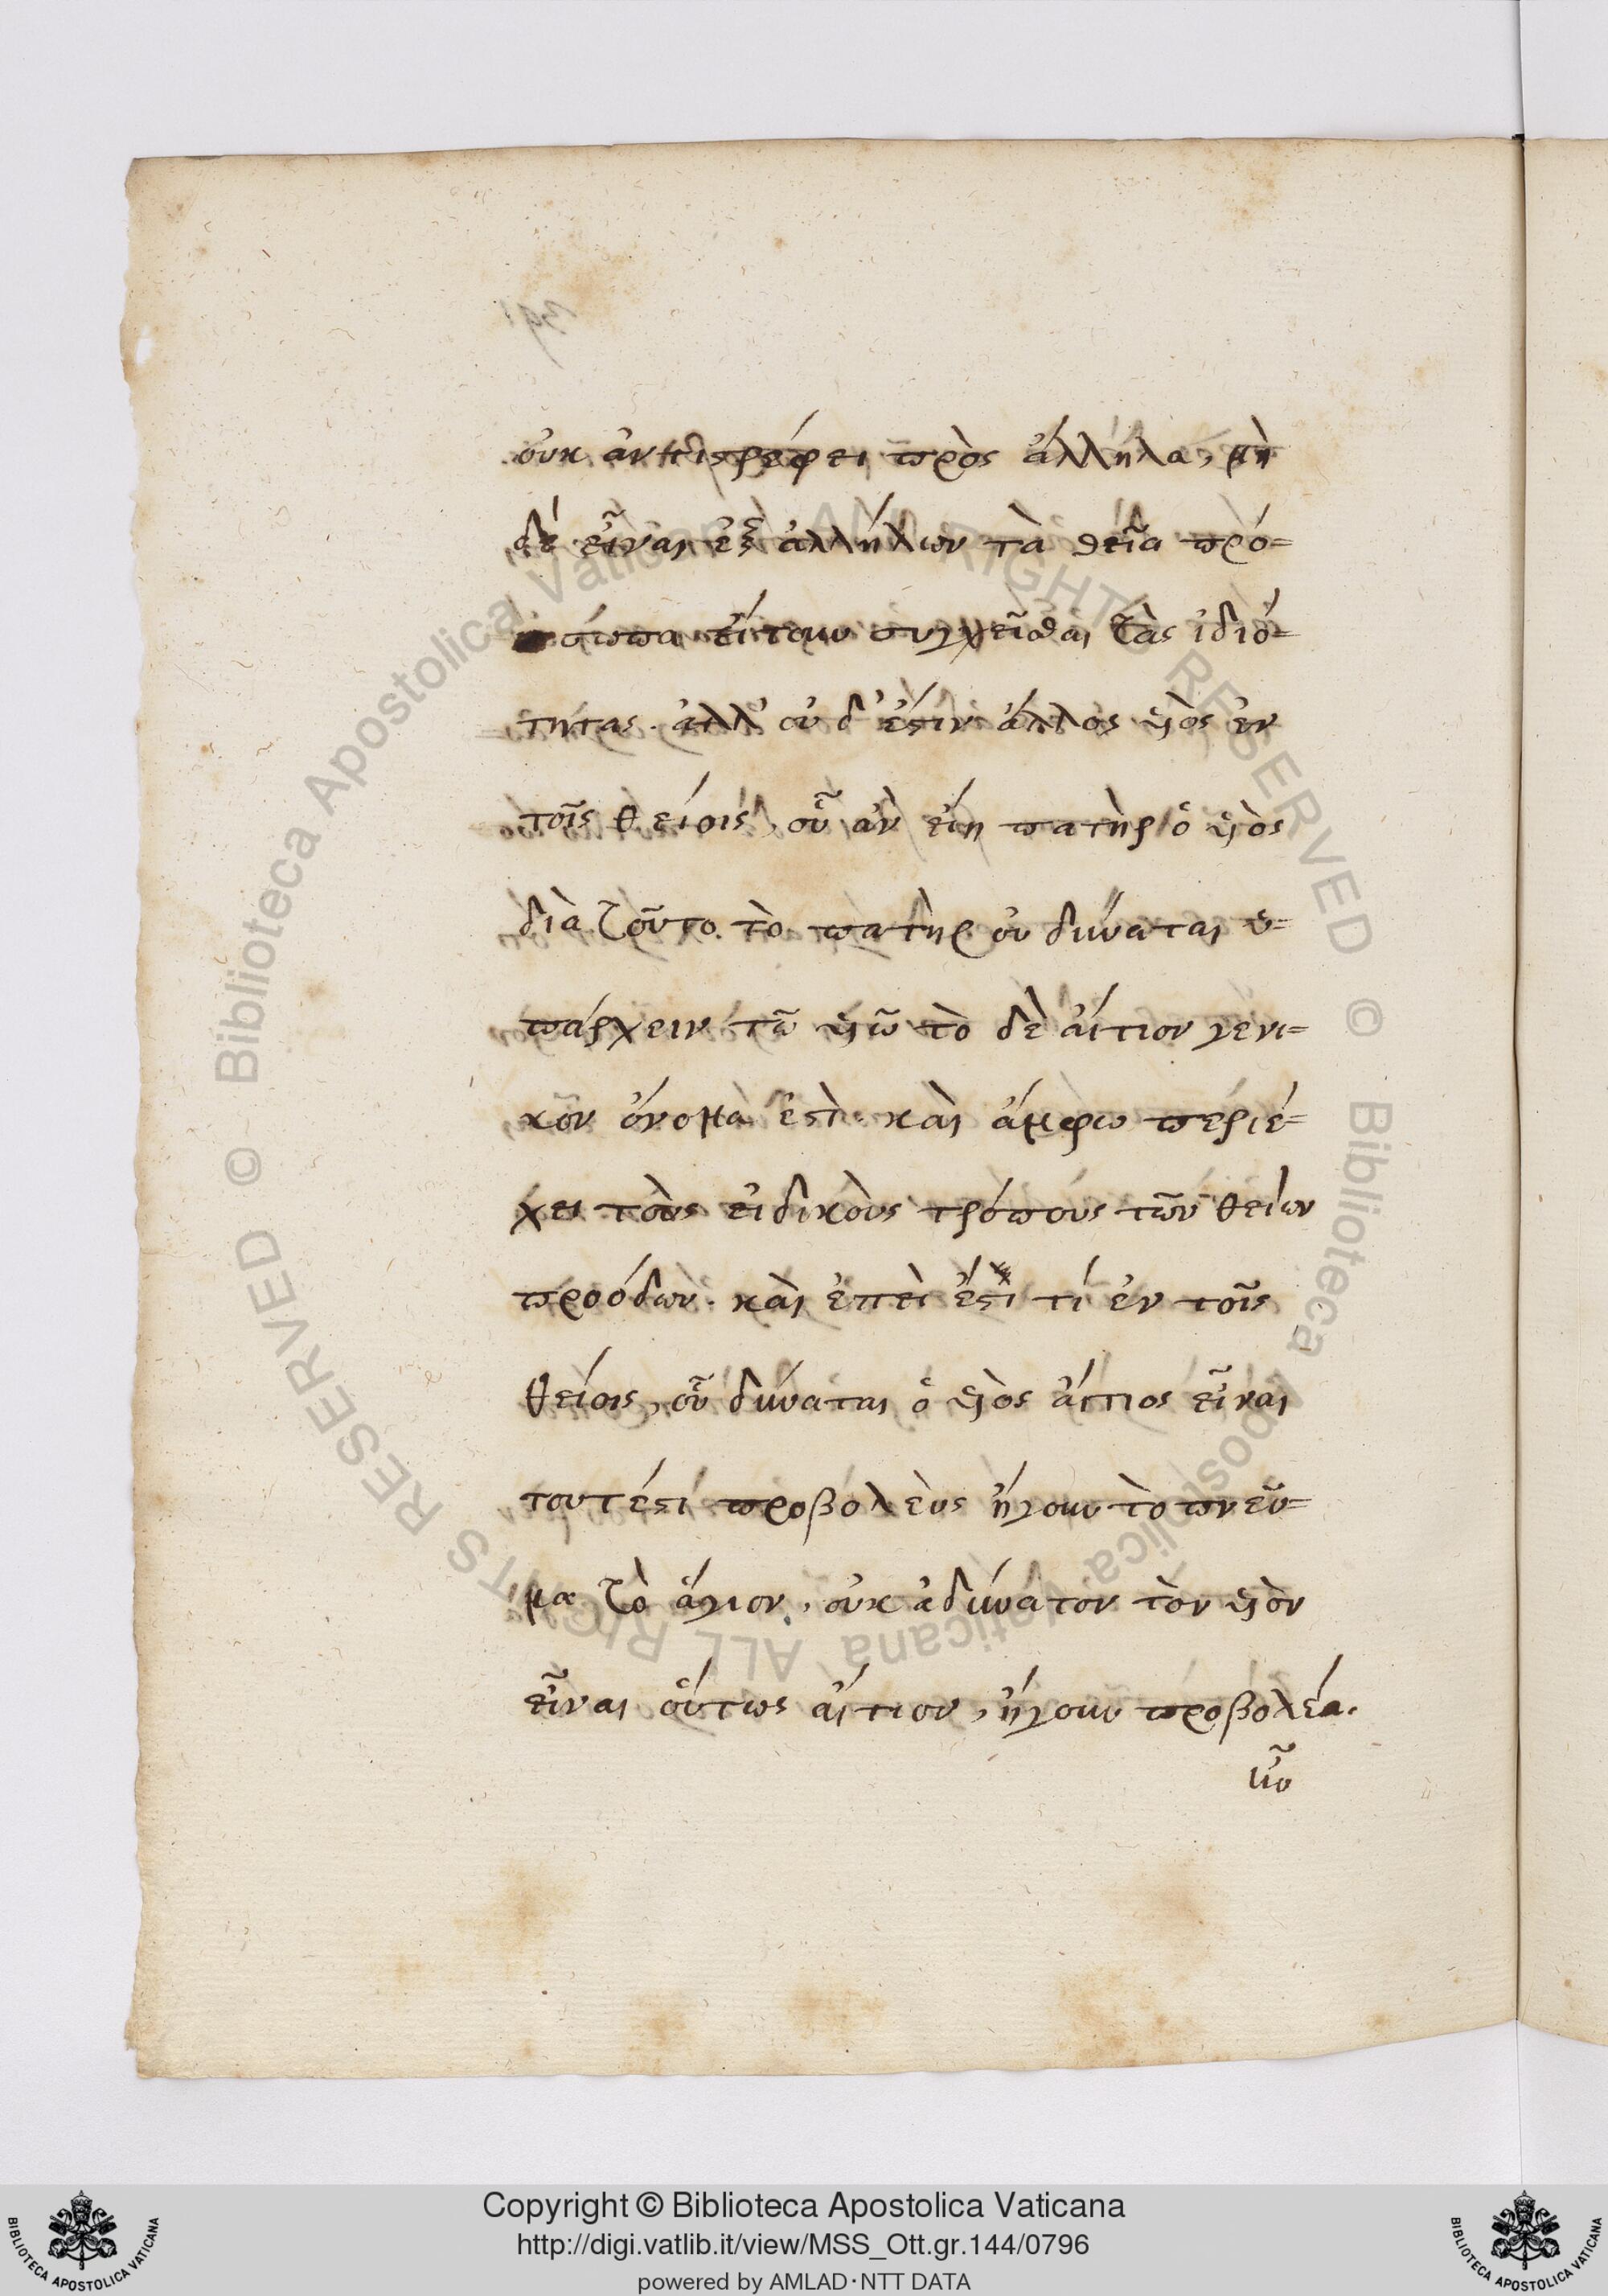 οὐκ ἀντιστρέφει πρὸς ἄλληλα, μὴ
δέ εἶναι ἐξ ἀλλήλων τὰ θεῖα πρό=
σωπα εἴτουν συγχεῖσθαι τὰς ἰδιό=
τητας. ἀλλ' οὐδ' ἔστιν ἄλλος υἱὸς ἐν
τοῖς θείοις, οὗ ἂν εἴη πατὴρ ὁ υἱὸς
διὰ τοῦτο τὸ πατὴρ οὐ δύναται ὑ=
πάρχειν τῶ υἱῶ τὸ δὲ αἴτιον γενι=
κὸν ὄνομα ἐστὶ καὶ ἄμφω περιέ=
χει τοὺς εἰδικοὺς τρόπους τῶν θείων
προόδων. καὶ ἐπεὶ ἔστι τί ἐν τοῖς
θείοις, οὗ δύναται ὁ υἱὸς αἴτιος εἶναι
τουτέστι προβολεὺς ἤγουν τὸ πνεῦ=
μα τὸ ἅγιον, οὐκ ἀδύνατον τὸν υἱὸν
εἶναι οὕτως αἴτιον, ἤγουν προβολέα.
Copyright © Biblioteca Apostolica Vaticana
http://digi.vatlib.it/view/MSS_Ott.gr.144/0796
powered by AMLAD·NTT DATA
BIBLIOTECA APOSTOLICA VATICANA
BIBLIOTECA APOSTOLICA VATICANA
© Biblioteca Apostolica Vaticana ALL RIGHTS RESERVED © Biblioteca Apostolica Vaticana ALL RIGHTS RESERVED